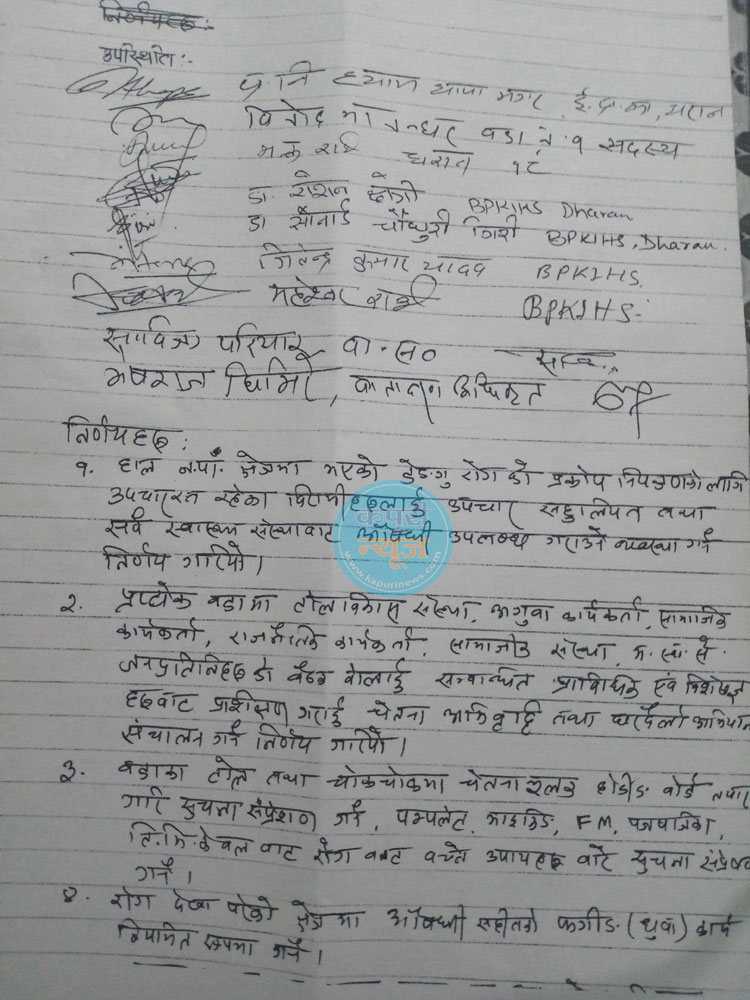 निर्णयहरू:-
उपस्थिति:-
प्र. नि श्याम थापा मगर, ई. प्र. का, धरान
विनोद मानन्धर वडा नं. १ सदस्य
राई धरान १८
डा. रोशन BPKIHS Dharan
डा चौधुरी गिरी BPKIHS, Dharan.
जितेन्द्र कुमार यादव BPKIHS.
महेश्वर राई BPKIHS.
सावित्रा परियार
भवराज घिमिरे, वातावरण अधिकृत
निर्णयहरू:
१. हाल न.पा. क्षेत्रमा भएको डेङ्गु रोग को प्रकोप नियन्त्रणको लागि
उपचाररत रहेका विरामीहरूलाई उपचार सहुलियत तथा
सबै स्वास्थ्य संस्थाबाट औषधी उपलब्ध गराउने व्यवस्था गर्ने
निर्णय गरियो।
कपुरी
न्यूज
www.kapurinews.com
२. प्रत्येक वडामा टोल विकास संस्था, अगुवा कार्यकर्ता, सामाजिक
कार्यकर्ता, राजनैतिक कार्यकर्ता, सामाजिक संस्था, म. स्वा. से.
जनप्रतिनिधिहरूको बैठक बोलाई सम्बन्धित प्राविधिक एवं विशेषज्ञ
हरूबाट प्रशिक्षण गराई चेतना अभिवृद्धि तथा घरदैलो अभियान
संचालन गर्ने निर्णय गरियो।
३. वडाका टोल तथा चोकचोकमा चेतनामूलक होर्डिङ बोर्ड तयार
गरि सुचना संप्रेषण गर्ने, पम्पलेट, माइकिङ, FM, पत्रपत्रिका,
टि.भि. केवल बाट रोग बाट बच्ने उपायहरू बारे सुचना संप्रेषण
गर्ने।
४. रोग देखा परेको क्षेत्रमा औषधी सहितको फगीङ (धुवाँ) कार्य
नियमित रूपमा गर्ने।